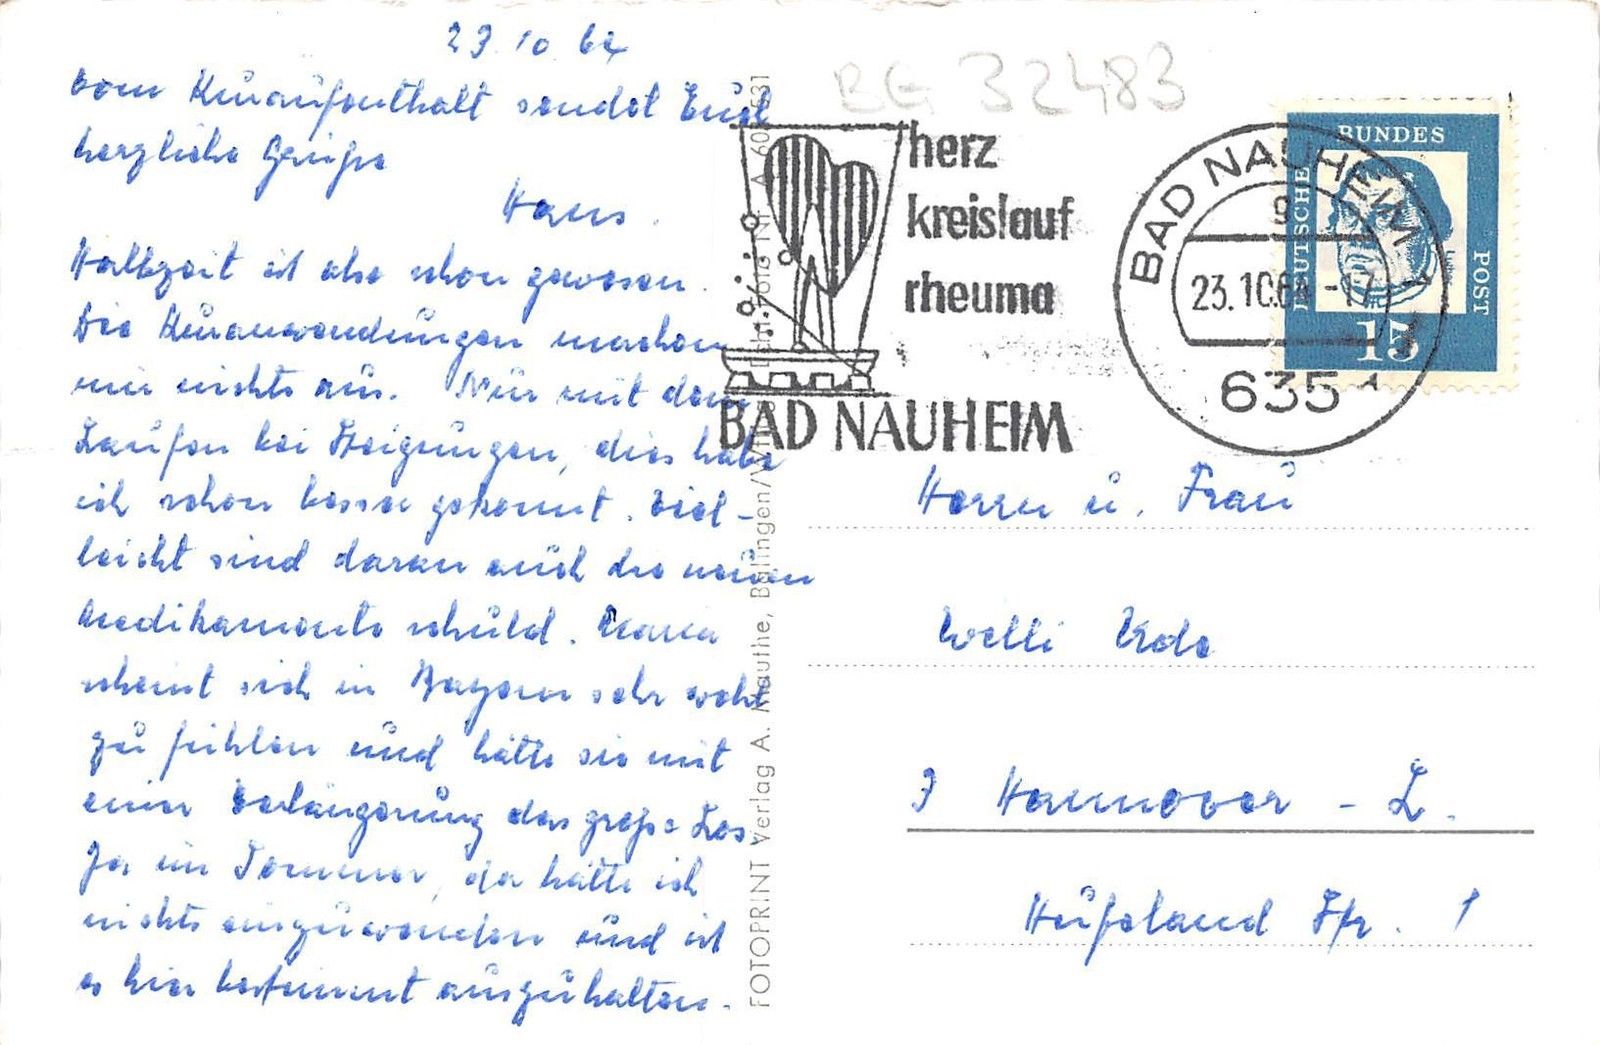 23.10.64
Vom Kuraufenthalt sendet Euch
herzliche Grüße
Hans.
Halbzeit ist also schon gewesen.
Die Kuranwendungen machen
mir nichts aus. Nur mit dem
Laufen bei Steigungen, dies habe
ich schon besser gekonnt. Viel-
leicht sind daran auch die neuen
Medikamente schuld.
scheint sich in Bayern sehr wohl
zu fühlen und hätte sie mit
einer Verlängerung das große Los.
Ja im Sommer, da hätte ich
nichts einzuwenden und ist
es hier bestimmt auszuhalten.
FOTOPRINT Verlag A. Mauthe, Balingen/
BG 32483
herz
kreislauf
rheuma
BAD NAUHEIM
BAD NAUHEIM 1
g
23.10.64-17
635
DEUTSCHE
BUNDES
POST
Luther
15
Herrn u. Frau
Willi
3 Hannover - L.
Hufeland Str. 1